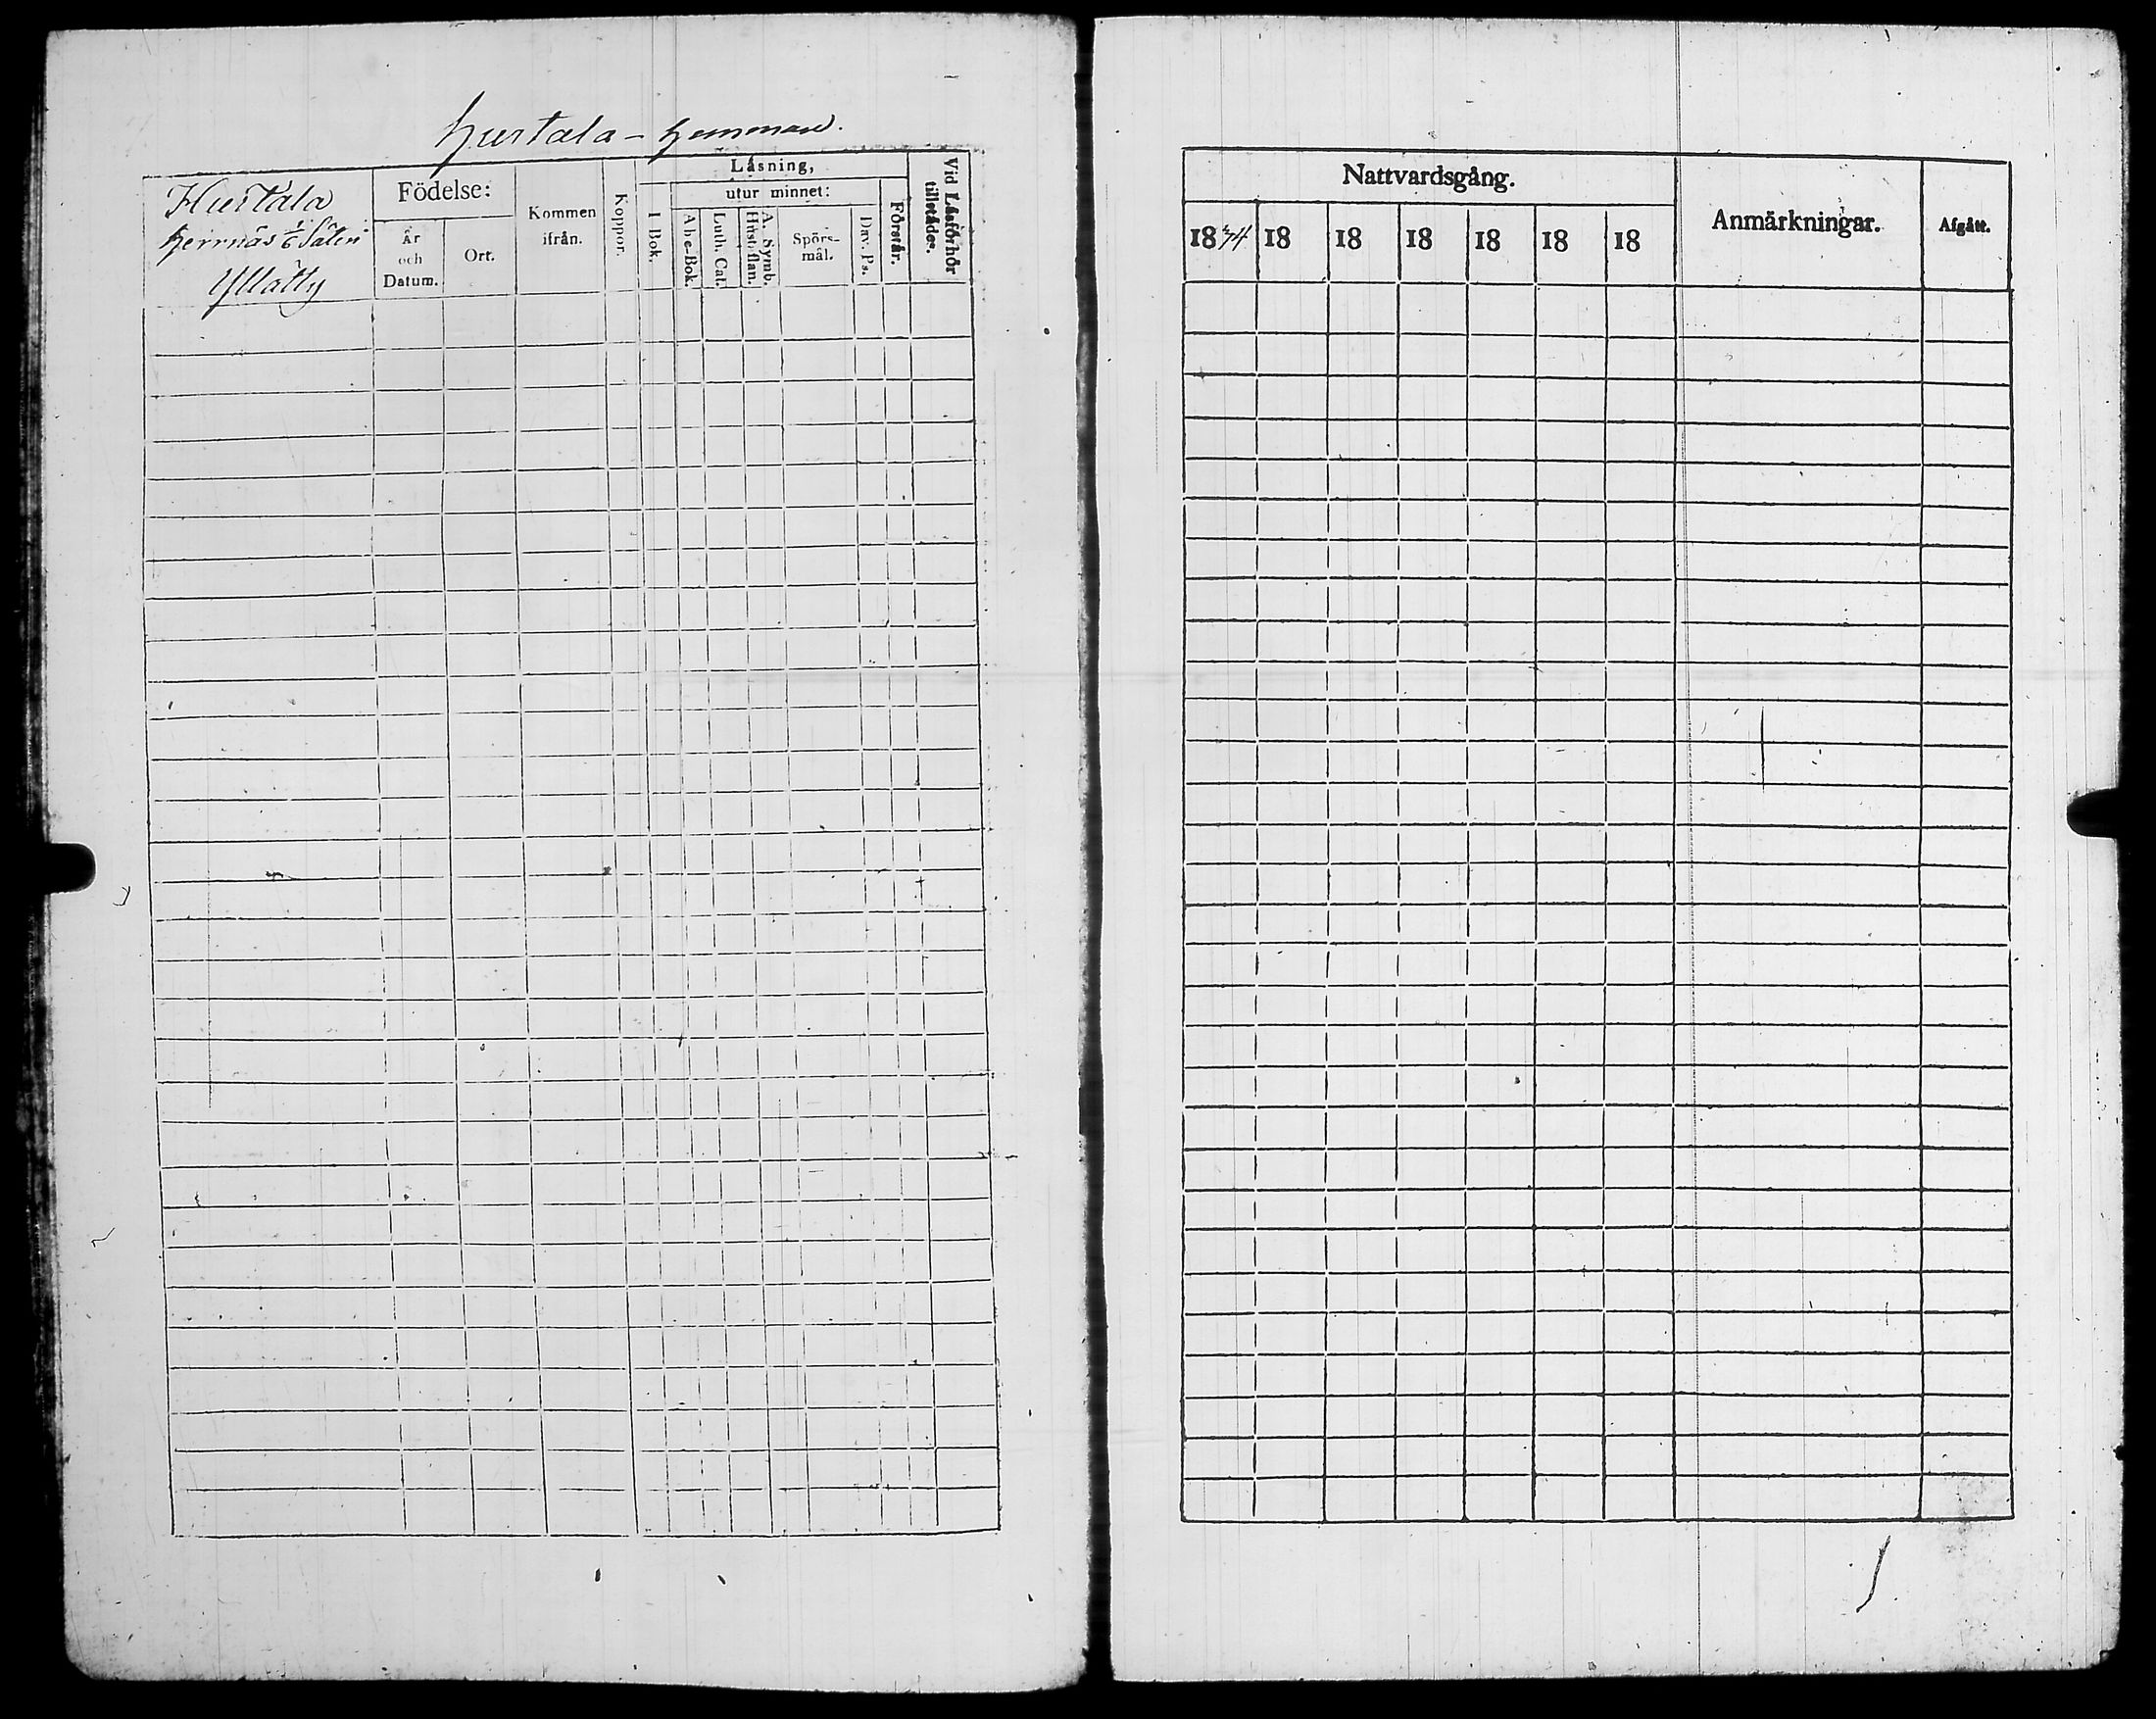 Hurtala - hemman.
Hurtala
herrnäs 1/6 Säteri
Yllätty
Födelse:
År
och
Datum.
Ort.
Kommen
ifrån.
Koppor.
Läsning,
I Bok.
utur minnet:
Abc-Bok.
Luth. Cat.
A. Symb.
Hustaflan.
Spörs-
mål.
Dav. Ps.
Förstår.
Vid Läsförhör
tillstädes.
Nattvardsgång.
1874 18 18 18 18 18 18
Anmärkningar.
Afgått.